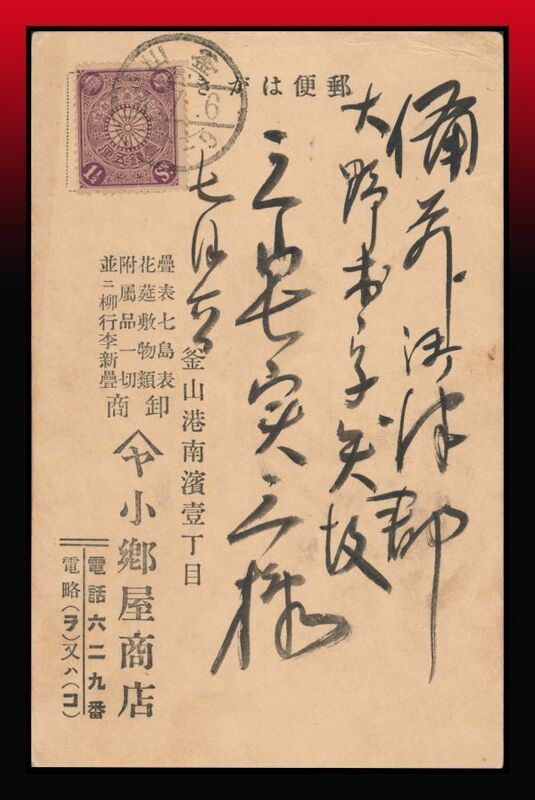 郵便はがき
備前御津郡
大野村字矢坂
七月六日
釜山港南濱壹丁目
疊表七島表
花莚敷物類 卸
附屬品一切
並ニ柳行李新疊 商
ヤ 小鄕屋商店
電話六二九番
電略(ヲ)又ハ(コ)
1½ Sn.